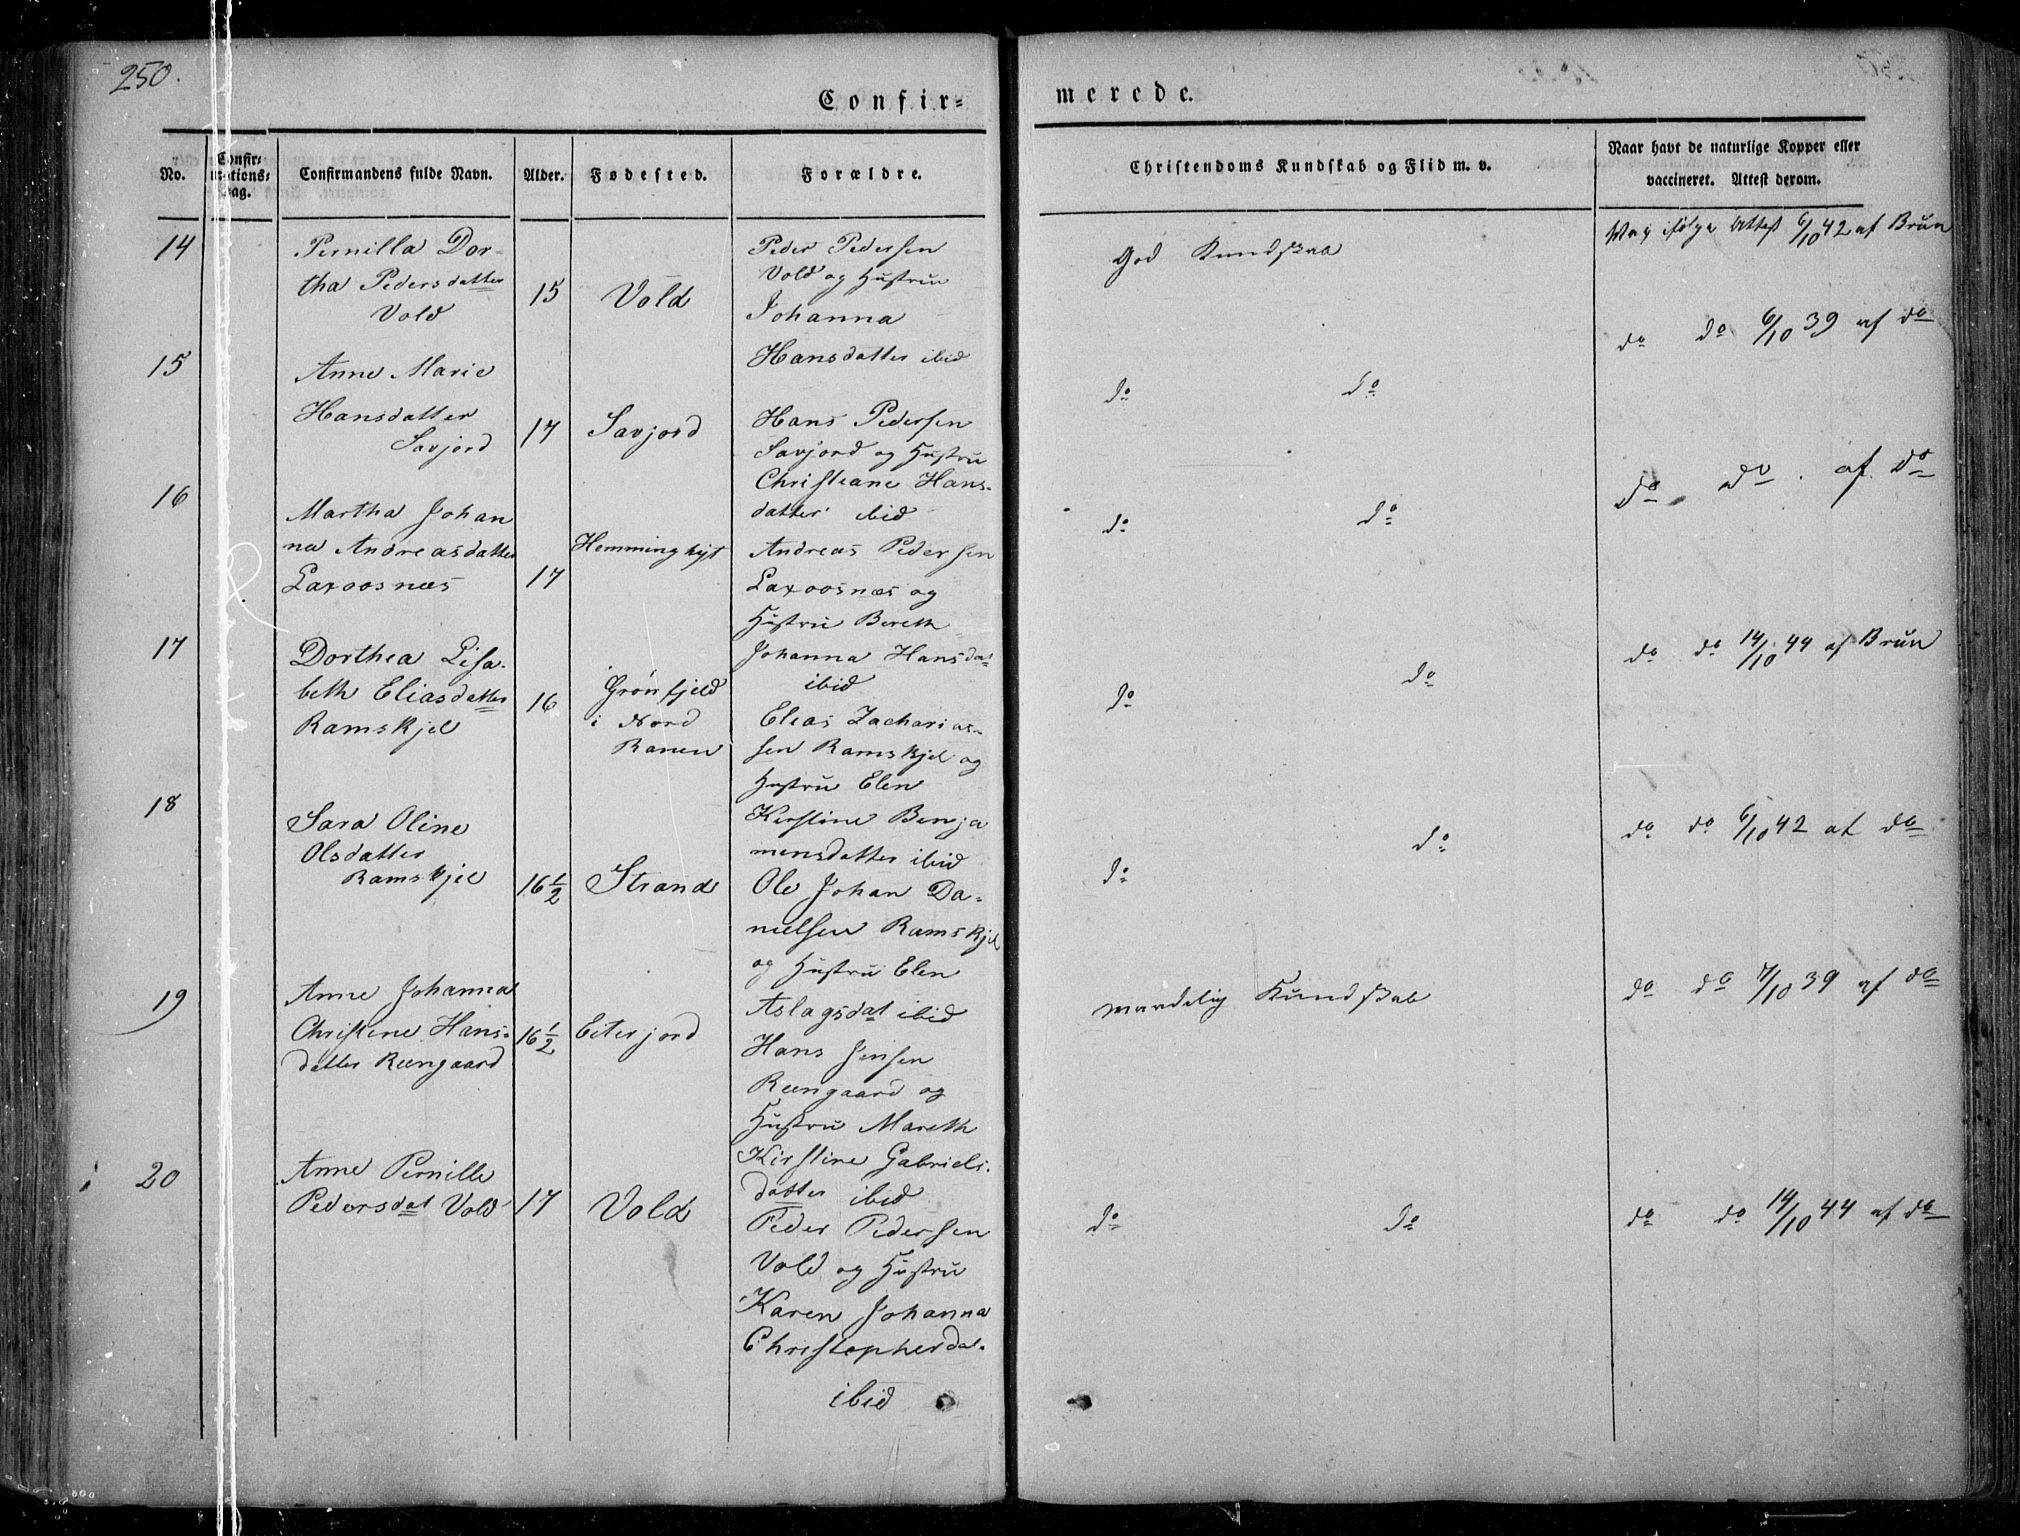 250.
Confir=
merede.
No.
Confir=
mations=
Dag.
Confirmandens fulde Navn.
Alder.
Fødested.
Forældre.
Christendoms Kundskab og Flid m. v.
Naar havt de naturlige Kopper eller
vaccineret. Attest derom.
14
Pernilla Dor-
tha Pedersdatter
Vold
15
Vold
Peder Pedersen
Vold og Hustru
Johanna
Hansdatter ibid
God Kundskab
Vax ifølge Attest 6/10 42 af Brun
15
Anne Marie
Hansdatter
Savjord
17
Savjord
Hans Pedersen
Savjord og Hustru
Christiane Hans-
datter ibid
do do
do do 6/10 39 af do
16
Martha Johan
na Andreasdatter
Laxoosnæs
17
Andreas Pedersen
Laxoosnæs og
Hustru Bereth
Johanna Hansdat
ibid
do do
do do . af do
17
Dorthea Lisa-
beth Eliasdatter
Ramskjel
16
Grønfjeld
i Nord
Ranen
Elias Zacharias-
sen Ramskjel og
Hustru Elen
Kirstine Benja
mensdatter ibid
do do
do do 14/10 44 af Brun
18
Sara Oline
Olsdatter
Ramskjel
16 1/2
Strand
Ole Johan Da-
nielsen Ramskjel
og Hustru Elen
Aslagsdat ibid
do do
do do 6/10 42 af do
19
Anne Johanna
Christine Hans-
datter Reengaard
16 1/2
Eiterjord
Hans Jensen
Reengaard og
Hustru Mareth
Kirstine Gabriels-
datter ibid
maadelig Kundskab
do do 7/10 39 af do
20
Anne Pernille
Pedersdat Vold
17
Vold
Peder Pedersen
Vold og Hustru
Karen Johanna
Christopherdat.
ibid
do do
do do 14/10 44 af do